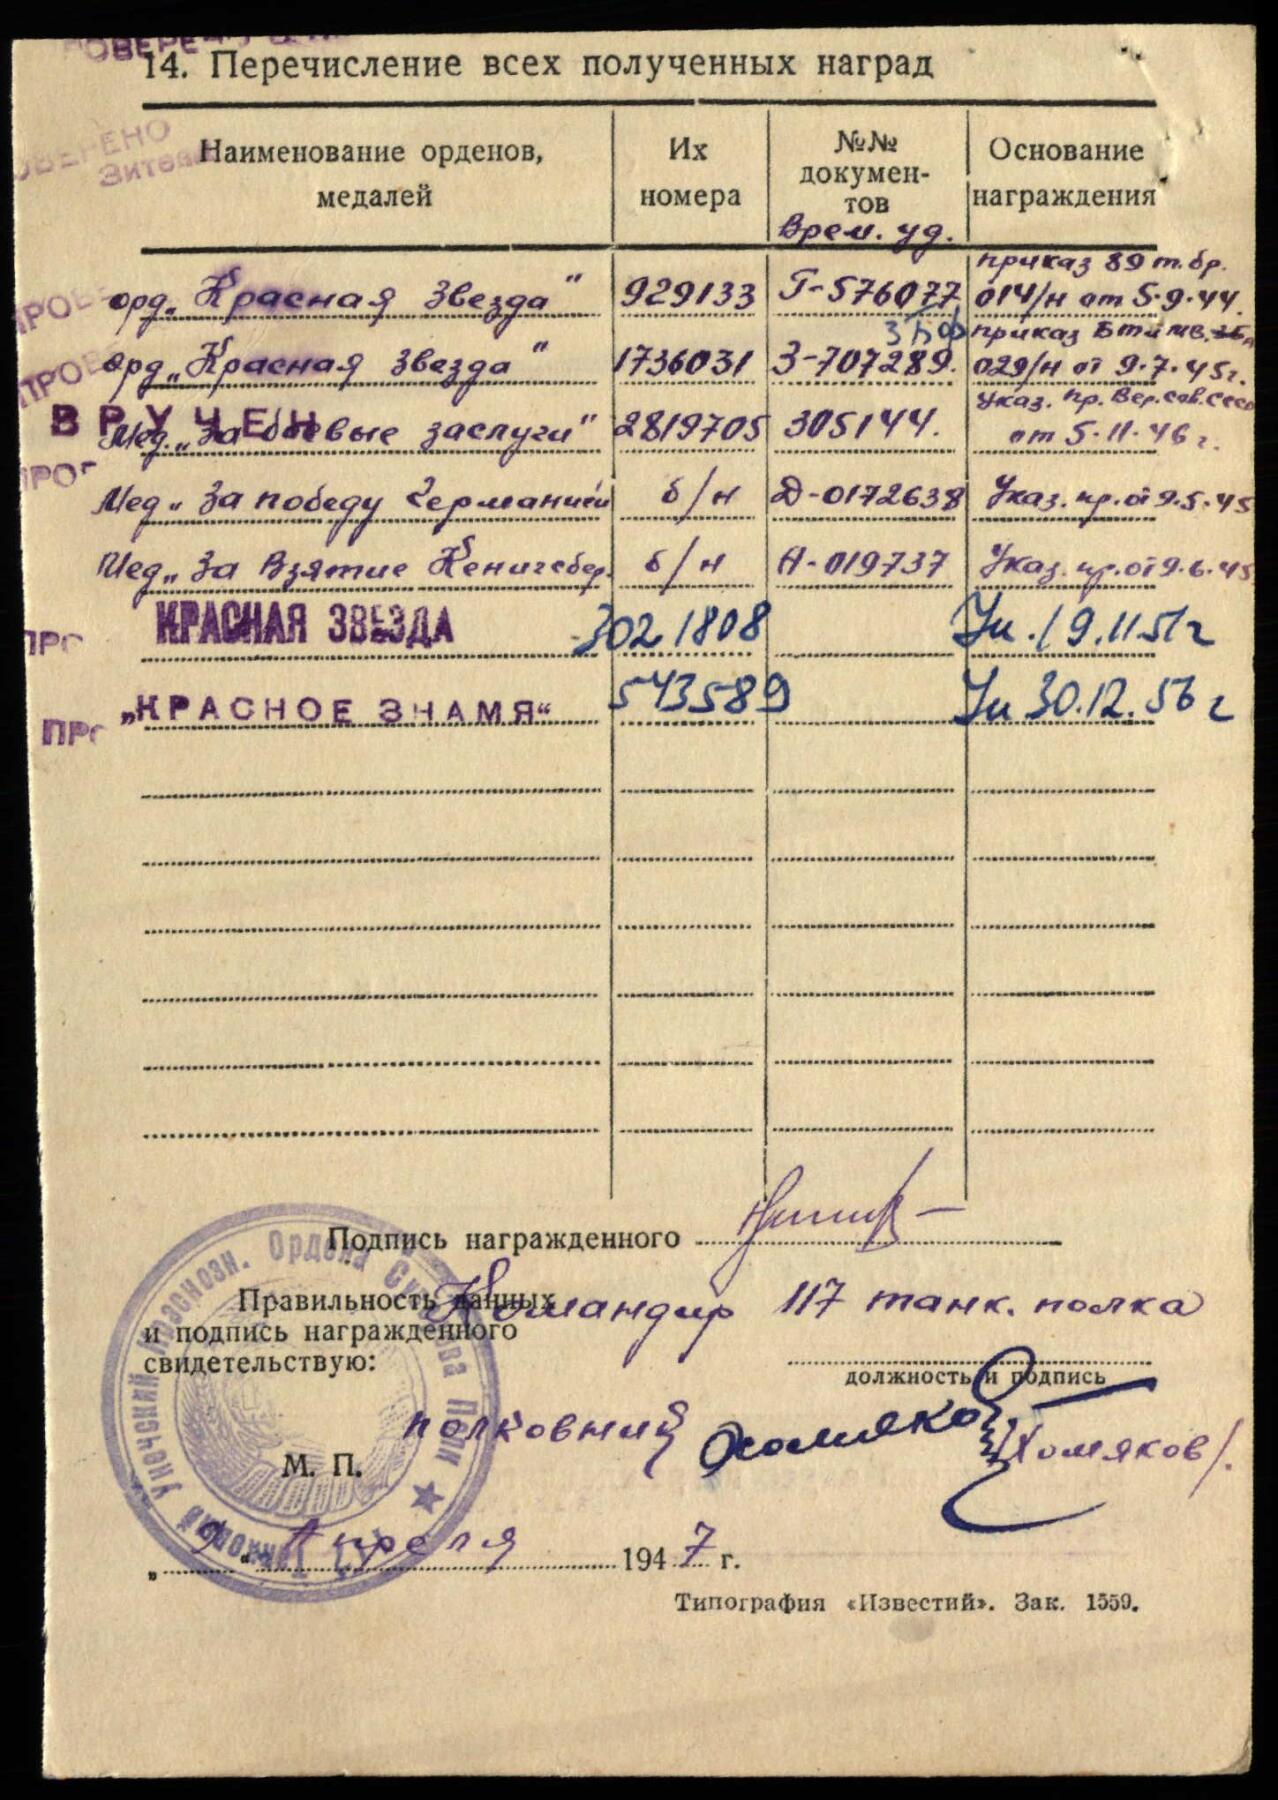 14. Перечисление всех полученных наград
Наименование орденов, медалей
Их номера
№№ документов
Врем. уд.
Основание награждения
орд. „Красная Звезда" 929133 Г-576077 приказ 89 т. бр. 014/н от 5.9.44.
орд „Красная Звезда" 1736031 З-707289. приказ БТ и МВ 029/н от 9.7.45г.
ВРУЧЕН
Мед. „За боевые заслуги" 2819705 305144. Указ. Пр. Вер. сов. СССР от 5.11.46 г.
Мед „За победу Германией б/н Д-0172638 Указ. пр. от 9.5.45
Мед „За Взятие Кенигсбер. б/н А-019737 Указ. пр. от 9.6.45
КРАСНАЯ ЗВЕЗДА 3021808 Ук. 19.11.51г
„КРАСНОЕ ЗНАМЯ" 543589 Ук 30.12.56 г
Подпись награжденного
Правильность данных
и подпись награжденного
свидетельствую:
Командир 117 танк. полка
должность и подпись
полковник Хомяков /Хомяков/.
М. П.
„9" Апреля 1947 г.
Типография «Известий». Зак. 1559.